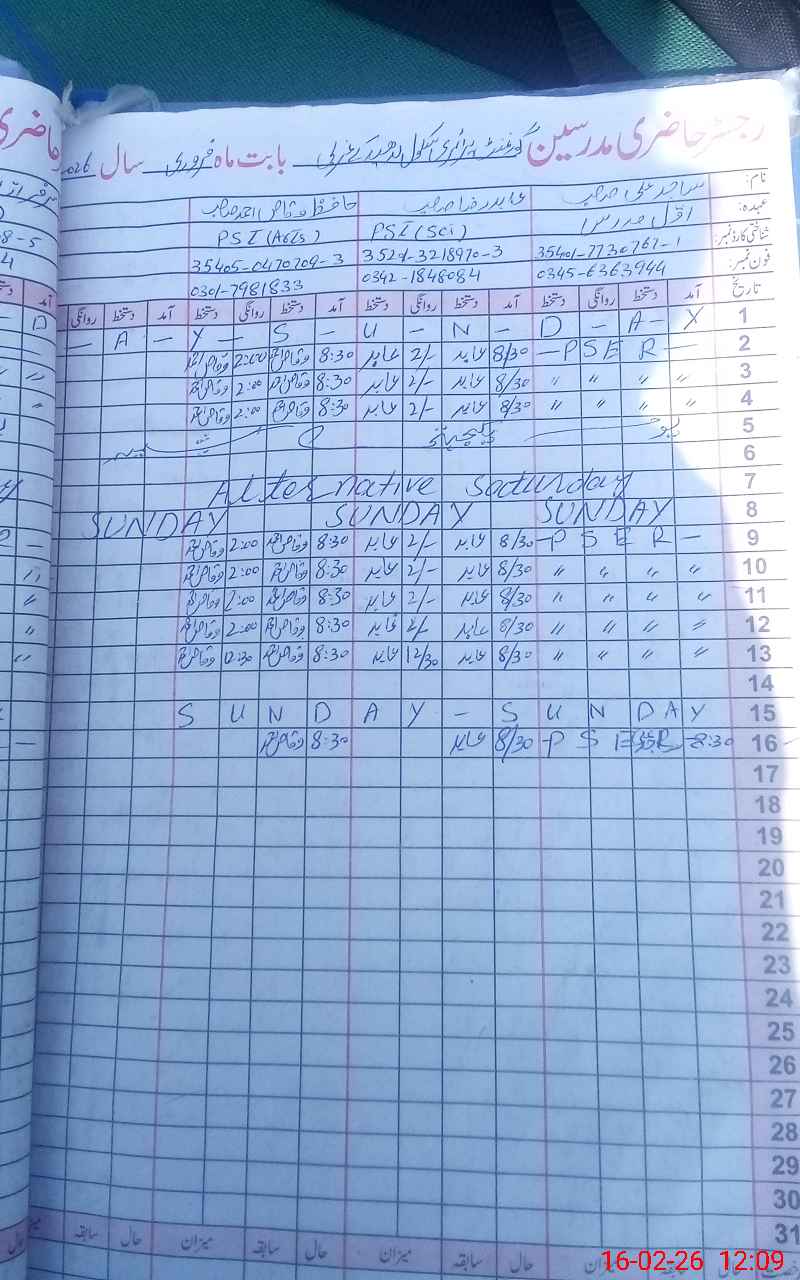 رجسٹر حاضری مدرسین گورنمنٹ پرائمری سکول بابت ماہ فروری سال 2026
نام: ساجد علی صاحب عابد رضا صاحب حافظ وقاص احمد صاحب
عہدہ: اول مدرس PST (Sci) PST (Arts)
شناختی کارڈ نمبر: 35401-7730767-1 35201-3218970-3 35405-0470709-3
فون نمبر: 0345-6363944 0342-1848084 0301-7981833
تاریخ آمد دستخط روانگی دستخط آمد دستخط روانگی دستخط آمد دستخط روانگی دستخط آمد دستخط روانگی
1 S - U - N - D - A - Y S - U - N - D - A - Y
2 - P S E R - 8/30 عابد 2/- عابد 8:30 وقاص احمد 2:00 وقاص احمد
3 " " " " 8/30 عابد 2/- عابد 8:30 وقاص احمد 2:00 وقاص احمد
4 " " " " 8/30 عابد 2/- عابد 8:30 وقاص احمد 2:00 وقاص احمد
5 یوم یکجہتی کشمیر
6
7 Alternative Saturday
8 SUNDAY SUNDAY SUNDAY
9 - P S E R - 8/30 عابد 2/- عابد 8:30 وقاص احمد 2:00 وقاص احمد
10 " " " " 8/30 عابد 2/- عابد 8:30 وقاص احمد 2:00 وقاص احمد
11 " " " " 8/30 عابد 2/- عابد 8:30 وقاص احمد 2:00 وقاص احمد
12 " " " " 8/30 عابد 2/- عابد 8:30 وقاص احمد 2:00 وقاص احمد
13 " " " " 8/30 عابد 12/30 عابد 8:30 وقاص احمد 12:30 وقاص احمد
14
15 S U N D A Y - S U N D A Y
16 8:30 - P S E R 8/30 عابد 8:30 وقاص احمد
17
18
19
20
21
22
23
24
25
26
27
28
29
30
31
میزان حال سابقہ میزان حال سابقہ میزان حال سابقہ
16-02-26 12:09